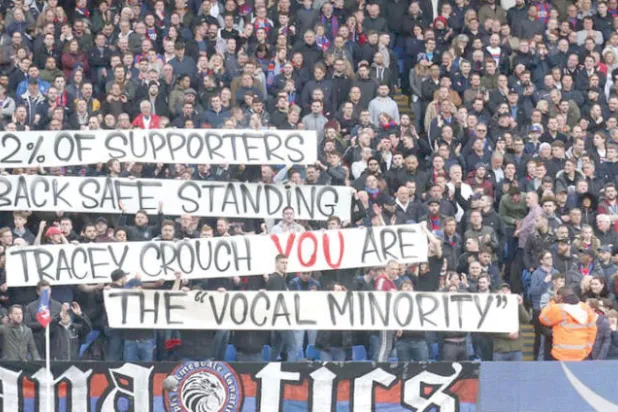 2% OF SUPPORTERS
BACK SAFE STANDING
TRACEY CROUCH YOU ARE
THE "VOCAL MINORITY"
anatics